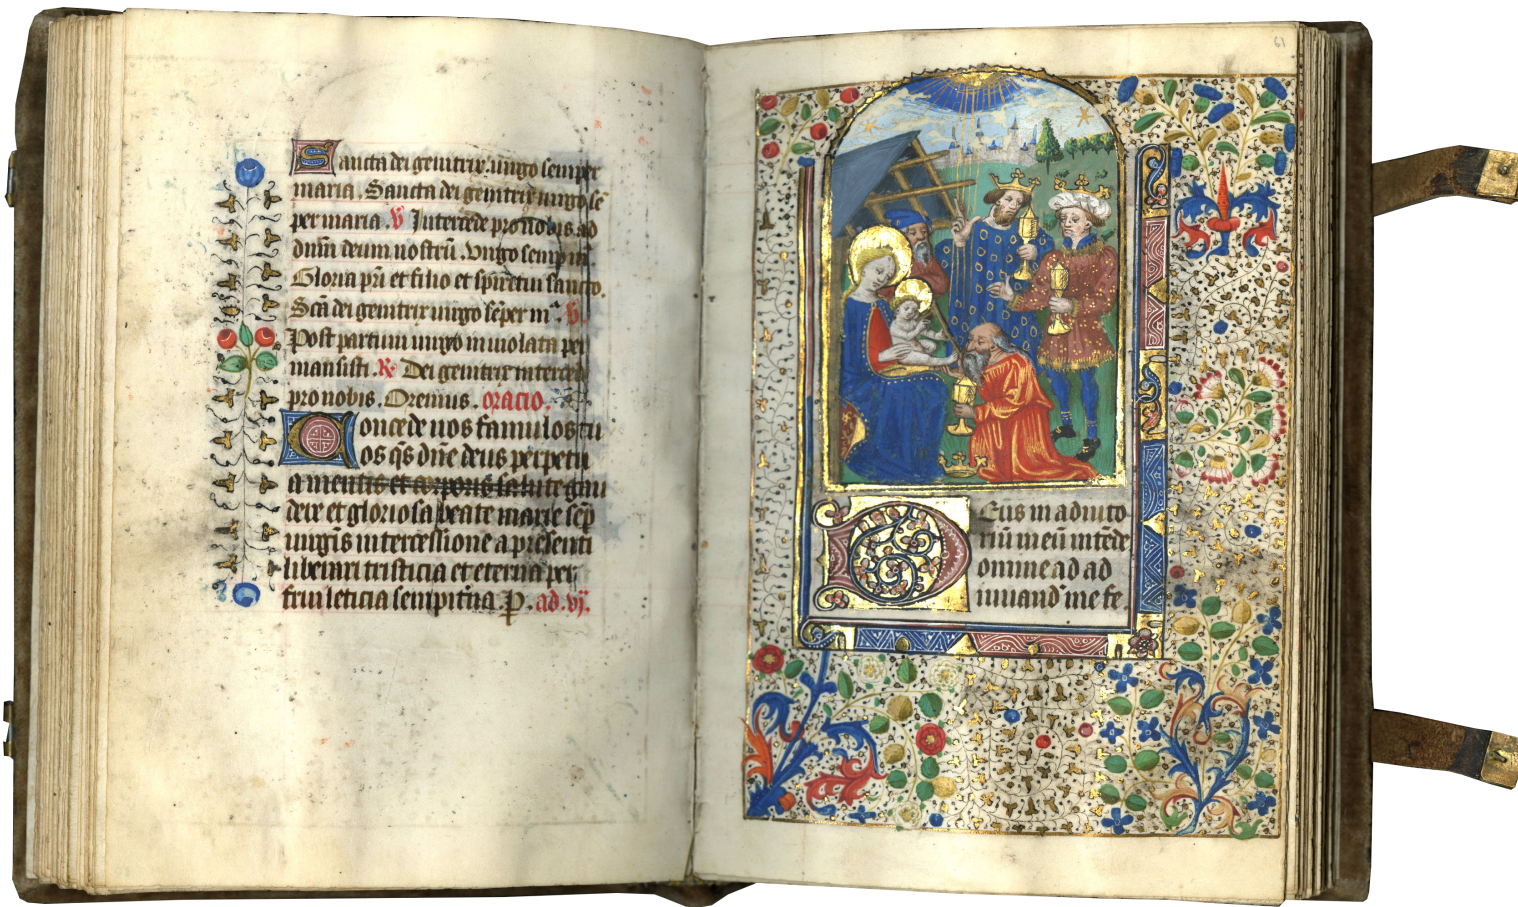 Sancta dei genitrix virgo semper
maria. Sancta dei genitrix virgo sē
per maria. ℣ Intercede pro nobis ad
dnm̄ deum nostrū. Virgo semp m̄
Gloria pr̄i et filio et spiritui sancto.
Sctā dei genitrix virgo sēper mª. ℣.
Post partum virgo inviolata per
mansisti. ℟ Dei genitrix interced
pro nobis. Oremus. oracio.
Concede nos famulos tu
os q̄s dn̄e deus perpetu
a mentis et corporis salute gau
dere et gloriosa beate marie sēp
virgīs intercessione a presenti
liberari tristicia et eterna per
frui leticia sempit̄na. P. ad .vj.
61
Deus in adiuto
riū meū intēde
Domine ad ad
iuuand' me fe